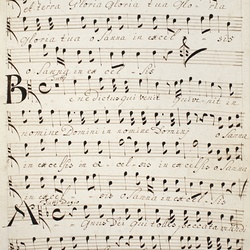 et terra Gloria Gloria tua Glo- ria
Gloria tua o Sanna in excel- sis
o Sanna in ex cel- sis
Benedictus qui venit Qui ve- nit in
nomine Domini in nomine Domini o Sanna
in excelsis in ex- cel- sis in excelsis o Sanna
in ex- cel- sis o Sanna in excelsis
Agnus Dei Qui tollis peccata